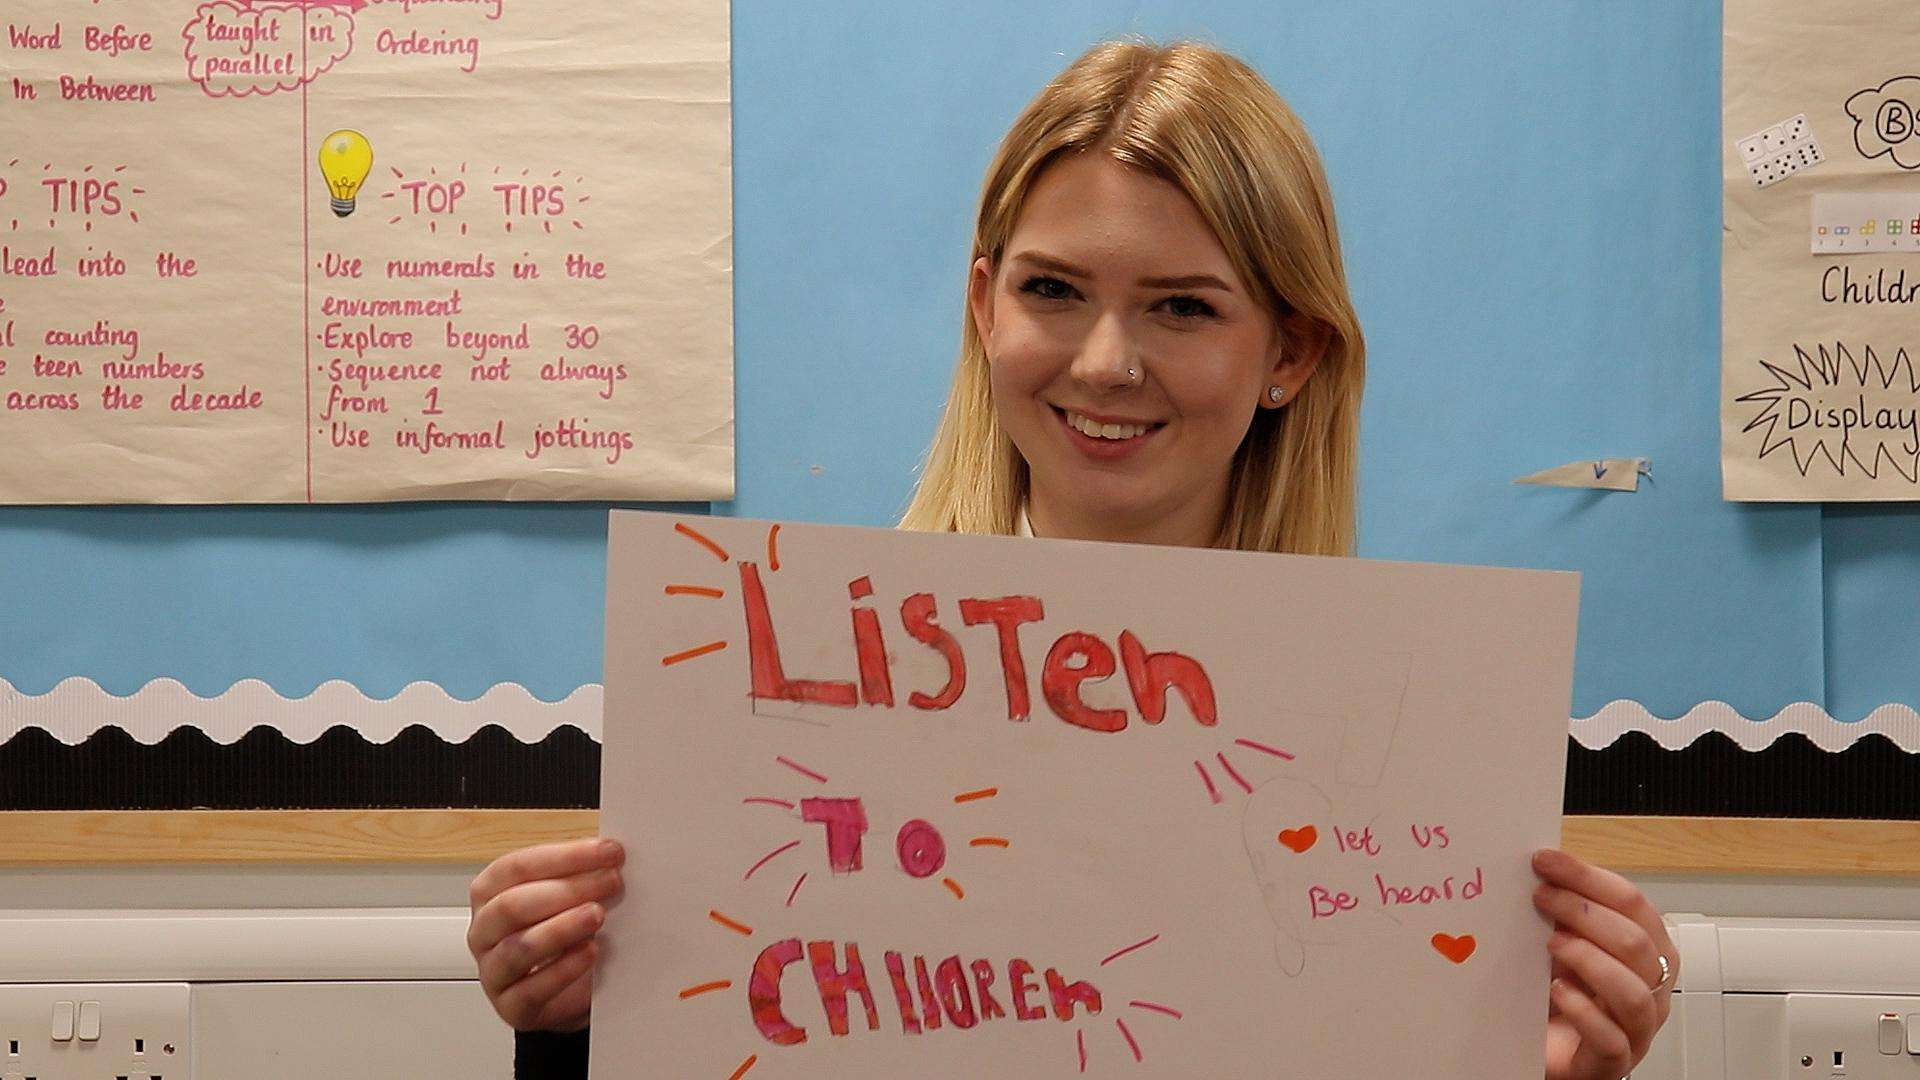 Word Before
In Between
taught in
parallel
Ordering
TIPS
lead into the
counting
teen numbers
across the decade
TOP TIPS
·Use numerals in the
environment
·Explore beyond 30
·Sequence not always
from 1
·Use informal jottings
Childr
Display
LiSTen
To
CHilDREn
let us
Be heard